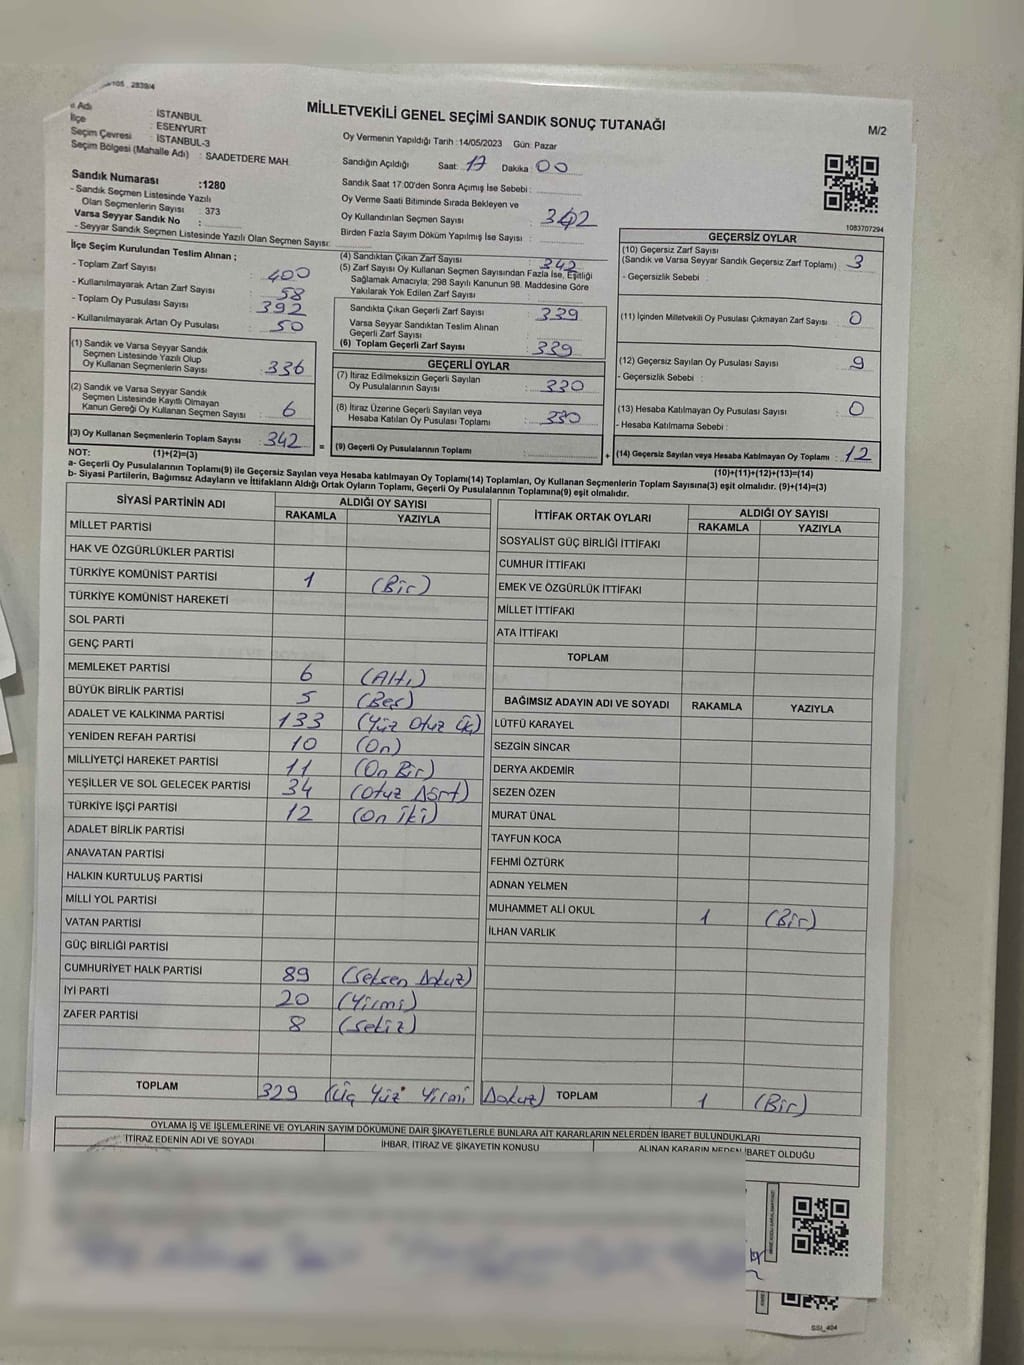 105_2839/4
MİLLETVEKİLİ GENEL SEÇİMİ SANDIK SONUÇ TUTANAĞI
M/2
Adı : İSTANBUL
İlçe : ESENYURT
Seçim Çevresi : İSTANBUL-3
Seçim Bölgesi (Mahalle Adı) : SAADETDERE MAH.
Sandık Numarası :1280
- Sandık Seçmen Listesinde Yazılı
Olan Seçmenlerin Sayısı : 373
Varsa Seyyar Sandık No :
- Seyyar Sandık Seçmen Listesinde Yazılı Olan Seçmen Sayısı:
Oy Vermenin Yapıldığı Tarih :14/05/2023 Gün: Pazar
Sandığın Açıldığı Saat: 17 Dakika : 00
Sandık Saat 17.00'den Sonra Açımış İse Sebebi :
Oy Verme Saati Bitiminde Sırada Bekleyen ve
Oy Kullandırılan Seçmen Sayısı : 342
Birden Fazla Sayım Döküm Yapılmış İse Sayısı :
1083707294
İlçe Seçim Kurulundan Teslim Alınan ;
- Toplam Zarf Sayısı : 400
- Kullanılmayarak Artan Zarf Sayısı : 58
- Toplam Oy Pusulası Sayısı : 392
- Kullanılmayarak Artan Oy Pusulası : 50
(1) Sandık ve Varsa Seyyar Sandık
Seçmen Listesinde Yazılı Olup
Oy Kullanan Seçmenlerin Sayısı : 336
(2) Sandık ve Varsa Seyyar Sandık
Seçmen Listesinde Kayıtlı Olmayan
Kanun Gereği Oy Kullanan Seçmen Sayısı : 6
(3) Oy Kullanan Seçmenlerin Toplam Sayısı : 342
(4) Sandıktan Çıkan Zarf Sayısı : 342
(5) Zarf Sayısı Oy Kullanan Seçmen Sayısından Fazla İse, Eşitliği
Sağlamak Amacıyla; 298 Sayılı Kanunun 98. Maddesine Göre
Yakılarak Yok Edilen Zarf Sayısı :
Sandıkta Çıkan Geçerli Zarf Sayısı : 339
Varsa Seyyar Sandıktan Teslim Alınan
Geçerli Zarf Sayısı :
(6) Toplam Geçerli Zarf Sayısı : 339
GEÇERLİ OYLAR
(7) İtiraz Edilmeksizin Geçerli Sayılan
Oy Pusulalarının Sayısı : 330
(8) İtiraz Üzerine Geçerli Sayılan veya
Hesaba Katılan Oy Pusulası Toplamı : 330
= (9) Geçerli Oy Pusulalarının Toplamı :
GEÇERSİZ OYLAR
(10) Geçersiz Zarf Sayısı
(Sandık ve Varsa Seyyar Sandık Geçersiz Zarf Toplamı) : 3
- Geçersizlik Sebebi :
(11) İçinden Milletvekili Oy Pusulası Çıkmayan Zarf Sayısı : 0
(12) Geçersiz Sayılan Oy Pusulası Sayısı : 9
- Geçersizlik Sebebi :
(13) Hesaba Katılmayan Oy Pusulası Sayısı : 0
- Hesaba Katılmama Sebebi :
+ (14) Geçersiz Sayılan veya Hesaba Katılmayan Oy Toplamı : 12
NOT: (1)+(2)=(3)
(10)+(11)+(12)+(13)=(14)
a- Geçerli Oy Pusulalarının Toplamı(9) ile Geçersiz Sayılan veya Hesaba katılmayan Oy Toplamı(14) Toplamları, Oy Kullanan Seçmenlerin Toplam Sayısına(3) eşit olmalıdır. (9)+(14)=(3)
b- Siyasi Partilerin, Bağımsız Adayların ve İttifakların Aldığı Ortak Oyların Toplamı, Geçerli Oy Pusulalarının Toplamına(9) eşit olmalıdır.
SİYASİ PARTİNİN ADI ALDIĞI OY SAYISI
RAKAMLA YAZIYLA
MİLLET PARTİSİ
HAK VE ÖZGÜRLÜKLER PARTİSİ
TÜRKİYE KOMÜNİST PARTİSİ 1 (Bir)
TÜRKİYE KOMÜNİST HAREKETİ
SOL PARTİ
GENÇ PARTİ
MEMLEKET PARTİSİ 6 (Altı)
BÜYÜK BİRLİK PARTİSİ 5 (Beş)
ADALET VE KALKINMA PARTİSİ 133 (Yüz Otuz Üç)
YENİDEN REFAH PARTİSİ 10 (On)
MİLLİYETÇİ HAREKET PARTİSİ 11 (On Bir)
YEŞİLLER VE SOL GELECEK PARTİSİ 34 (Otuz Dört)
TÜRKİYE İŞÇİ PARTİSİ 12 (On İki)
ADALET BİRLİK PARTİSİ
ANAVATAN PARTİSİ
HALKIN KURTULUŞ PARTİSİ
MİLLİ YOL PARTİSİ
VATAN PARTİSİ
GÜÇ BİRLİĞİ PARTİSİ
CUMHURİYET HALK PARTİSİ 89 (Seksen Dokuz)
İYİ PARTİ 20 (Yirmi)
ZAFER PARTİSİ 8 (Sekiz)
TOPLAM 329 (Üç Yüz Yirmi Dokuz)
İTTİFAK ORTAK OYLARI ALDIĞI OY SAYISI
RAKAMLA YAZIYLA
SOSYALİST GÜÇ BİRLİĞİ İTTİFAKI
CUMHUR İTTİFAKI
EMEK VE ÖZGÜRLÜK İTTİFAKI
MİLLET İTTİFAKI
ATA İTTİFAKI
TOPLAM
BAĞIMSIZ ADAYIN ADI VE SOYADI RAKAMLA YAZIYLA
LÜTFÜ KARAYEL
SEZGİN SİNCAR
DERYA AKDEMİR
SEZEN ÖZEN
MURAT ÜNAL
TAYFUN KOCA
FEHMİ ÖZTÜRK
ADNAN YELMEN
MUHAMMET ALİ OKUL 1 (Bir)
İLHAN VARLIK
TOPLAM 1 (Bir)
OYLAMA İŞ VE İŞLEMLERİNE VE OYLARIN SAYIM DÖKÜMÜNE DAİR ŞİKAYETLERLE BUNLARA AİT KARARLARIN NELERDEN İBARET BULUNDUKLARI
İTİRAZ EDENİN ADI VE SOYADI İHBAR, İTİRAZ VE ŞİKAYETİN KONUSU ALINAN KARARIN NEDEN İBARET OLDUĞU
SSI_404